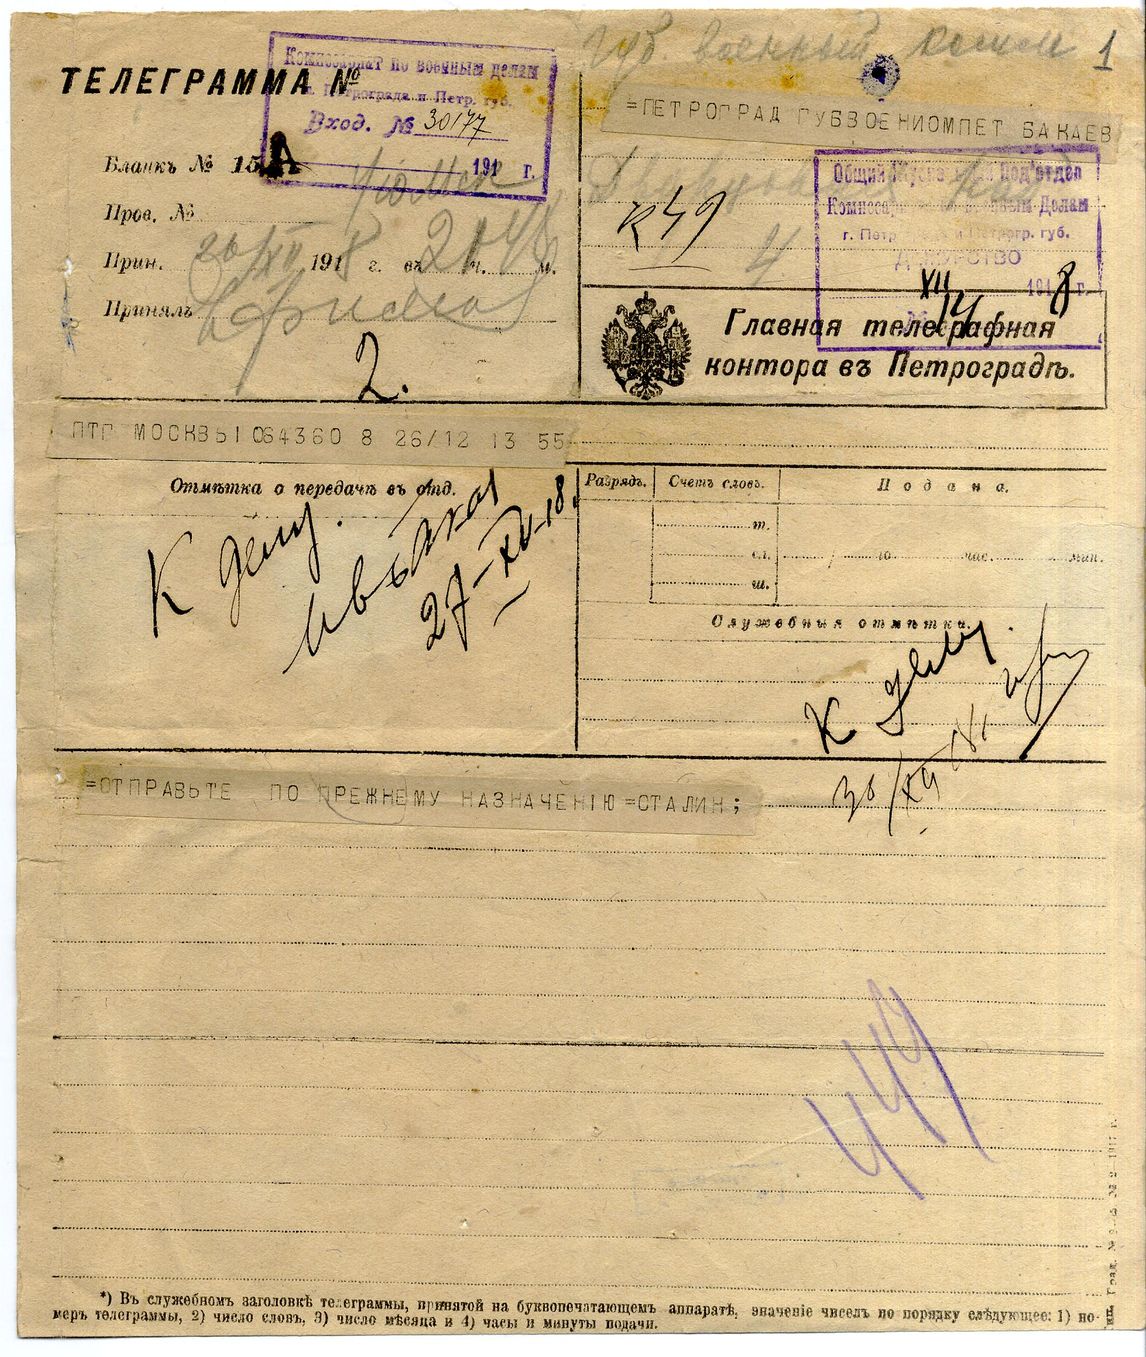 губ. военный комис 1
ТЕЛЕГРАММА №
Комиссариат по военным делам
г. Петрограда и Петр. губ.
Вход. № 30177
191 г.
=ПЕТРОГРАД ГУБВОЕНИОМПЕТ БАКАЕВ
Бланкъ № 15 А
Пров. №
Прин. 26/XII 1918 г. въ 21 ч. 40 м.
Принялъ
2.
К 49
4
Общий Мускарский Под'отдел
Комиссариата по Военным Делам
г. Петрограда и Петрогр. губ.
ДЕЖУРСТВО
XII 1918 г.
Главная телеграфная
контора въ Петроградѣ.
ПТГ МОСКВЫ 064360 8 26/12 13 55
Отмѣтка о передачѣ въ отд.
Разрядъ. Счетъ словъ. Подана.
т.
сл. / го час. мин.
ш.
К делу.
27-XII-18.
Служебныя отмѣтки.
К делу.
30/XII 18.
=ОТПРАВЬТЕ ПО ПРЕЖНЕМУ НАЗНАЧЕНIЮ=СТАЛИН;
449
*) Въ служебномъ заголовкѣ телеграммы, принятой на буквопечатающемъ аппаратѣ, значеніе чиселъ по порядку слѣдующее: 1) но-
меръ телеграммы, 2) число словъ, 3) число мѣсяца и 4) часы и минуты подачи.